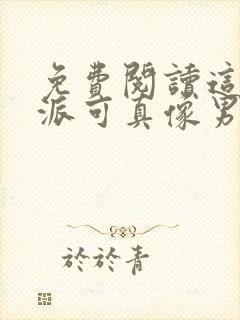 免費閱讀這
派可真像男
於於青